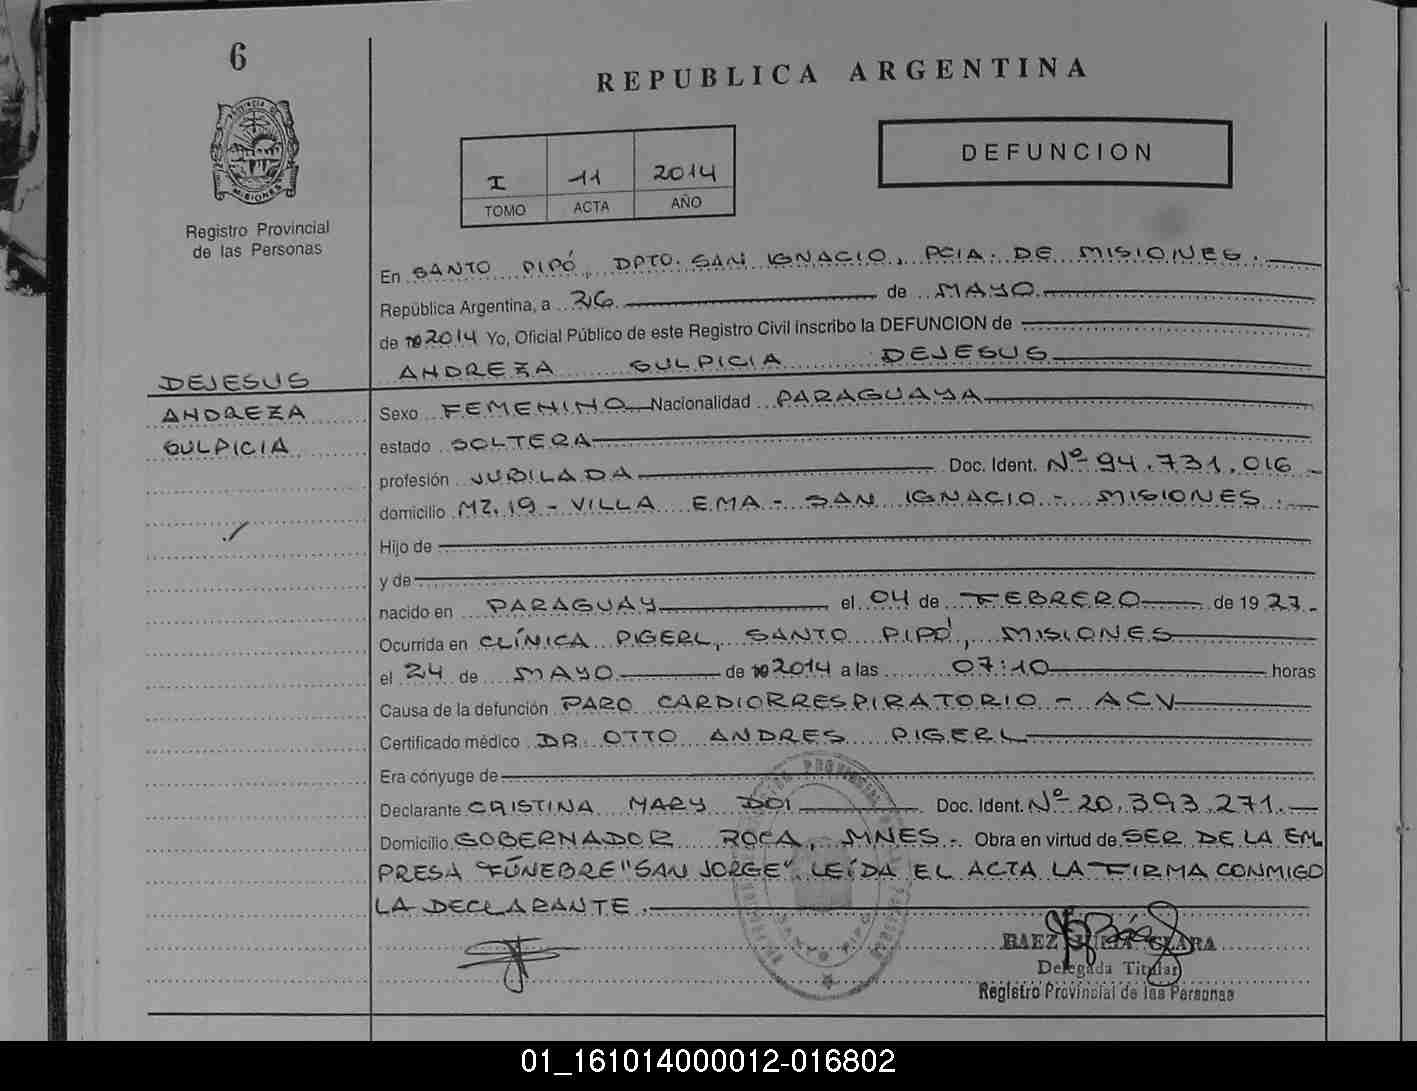 6
REPUBLICA ARGENTINA
PROVINCIA DE
MISIONES
I 11 2014
TOMO ACTA AÑO
DEFUNCION
Registro Provincial
de las Personas
En SANTO PIPÓ, DPTO. SAN IGNACIO, PCIA. DE MISIONES.
República Argentina, a 26 de MAYO
de 2014 Yo, Oficial Público de este Registro Civil inscribo la DEFUNCION de
ANDREZA SULPICIA DEJESUS
DEJESUS
ANDREZA
SULPICIA
Sexo FEMENINO Nacionalidad PARAGUAYA
estado SOLTERA
profesión JUBILADA Doc. Ident. Nº 94.731.016
domicilio MZ. 19 - VILLA EMA - SAN IGNACIO - MISIONES.
Hijo de
y de
nacido en PARAGUAY el 04 de FEBRERO de 1927.
Ocurrida en CLÍNICA PIGERL, SANTO PIPÓ, MISIONES
el 24 de MAYO de 2014 a las 07:10 horas
Causa de la defunción PARO CARDIORRESPIRATORIO - ACV
Certificado médico DR. OTTO ANDRES PIGERL
Era cónyuge de
Declarante CRISTINA MARY DOI Doc. Ident. Nº 20.393.271.
Domicilio GOBERNADOR ROCA, MNES. Obra en virtud de SER DE LA EM
PRESA FÚNEBRE "SAN JORGE". LEÍDA EL ACTA LA FIRMA CONMIGO
LA DECLARANTE.
SANTO PIPO
BAEZ JULIA CLARA
Delegada Titular
Registro Provincial de las Personas
01_161014000012-016802